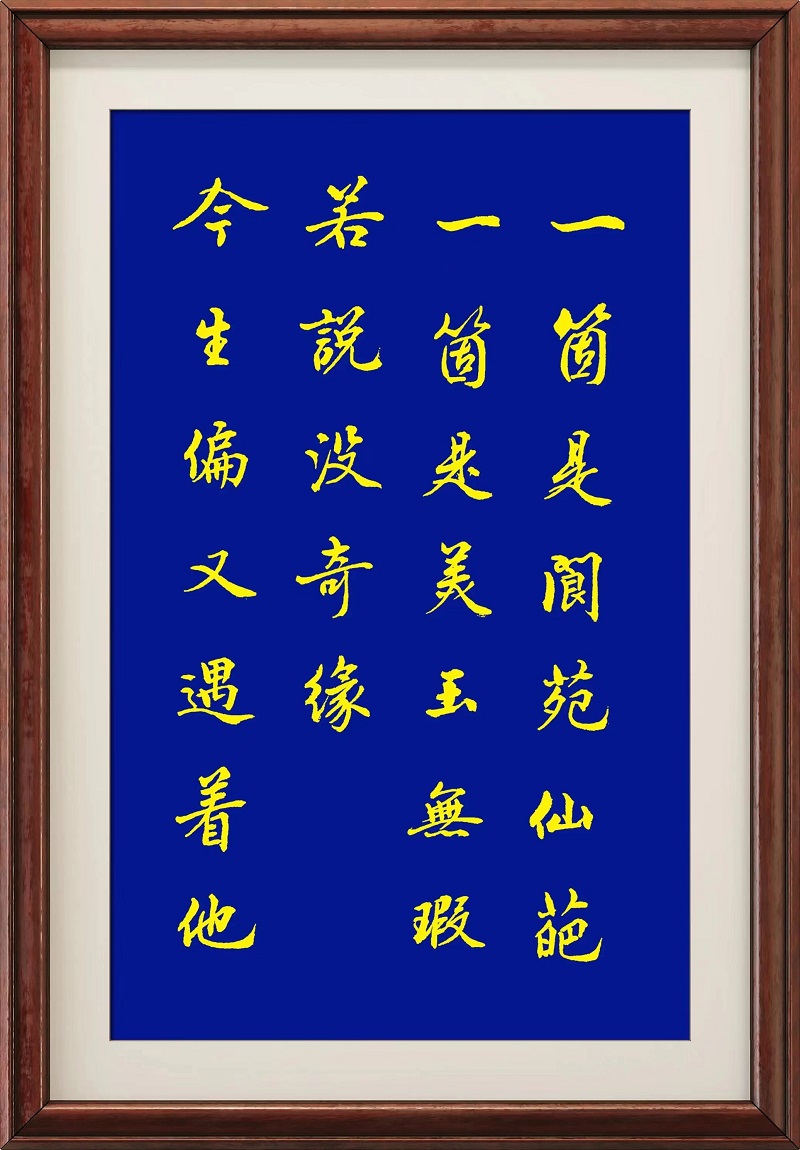 一箇是閬苑仙葩
一箇是美玉無瑕
若説没奇缘
今生偏又遇着他